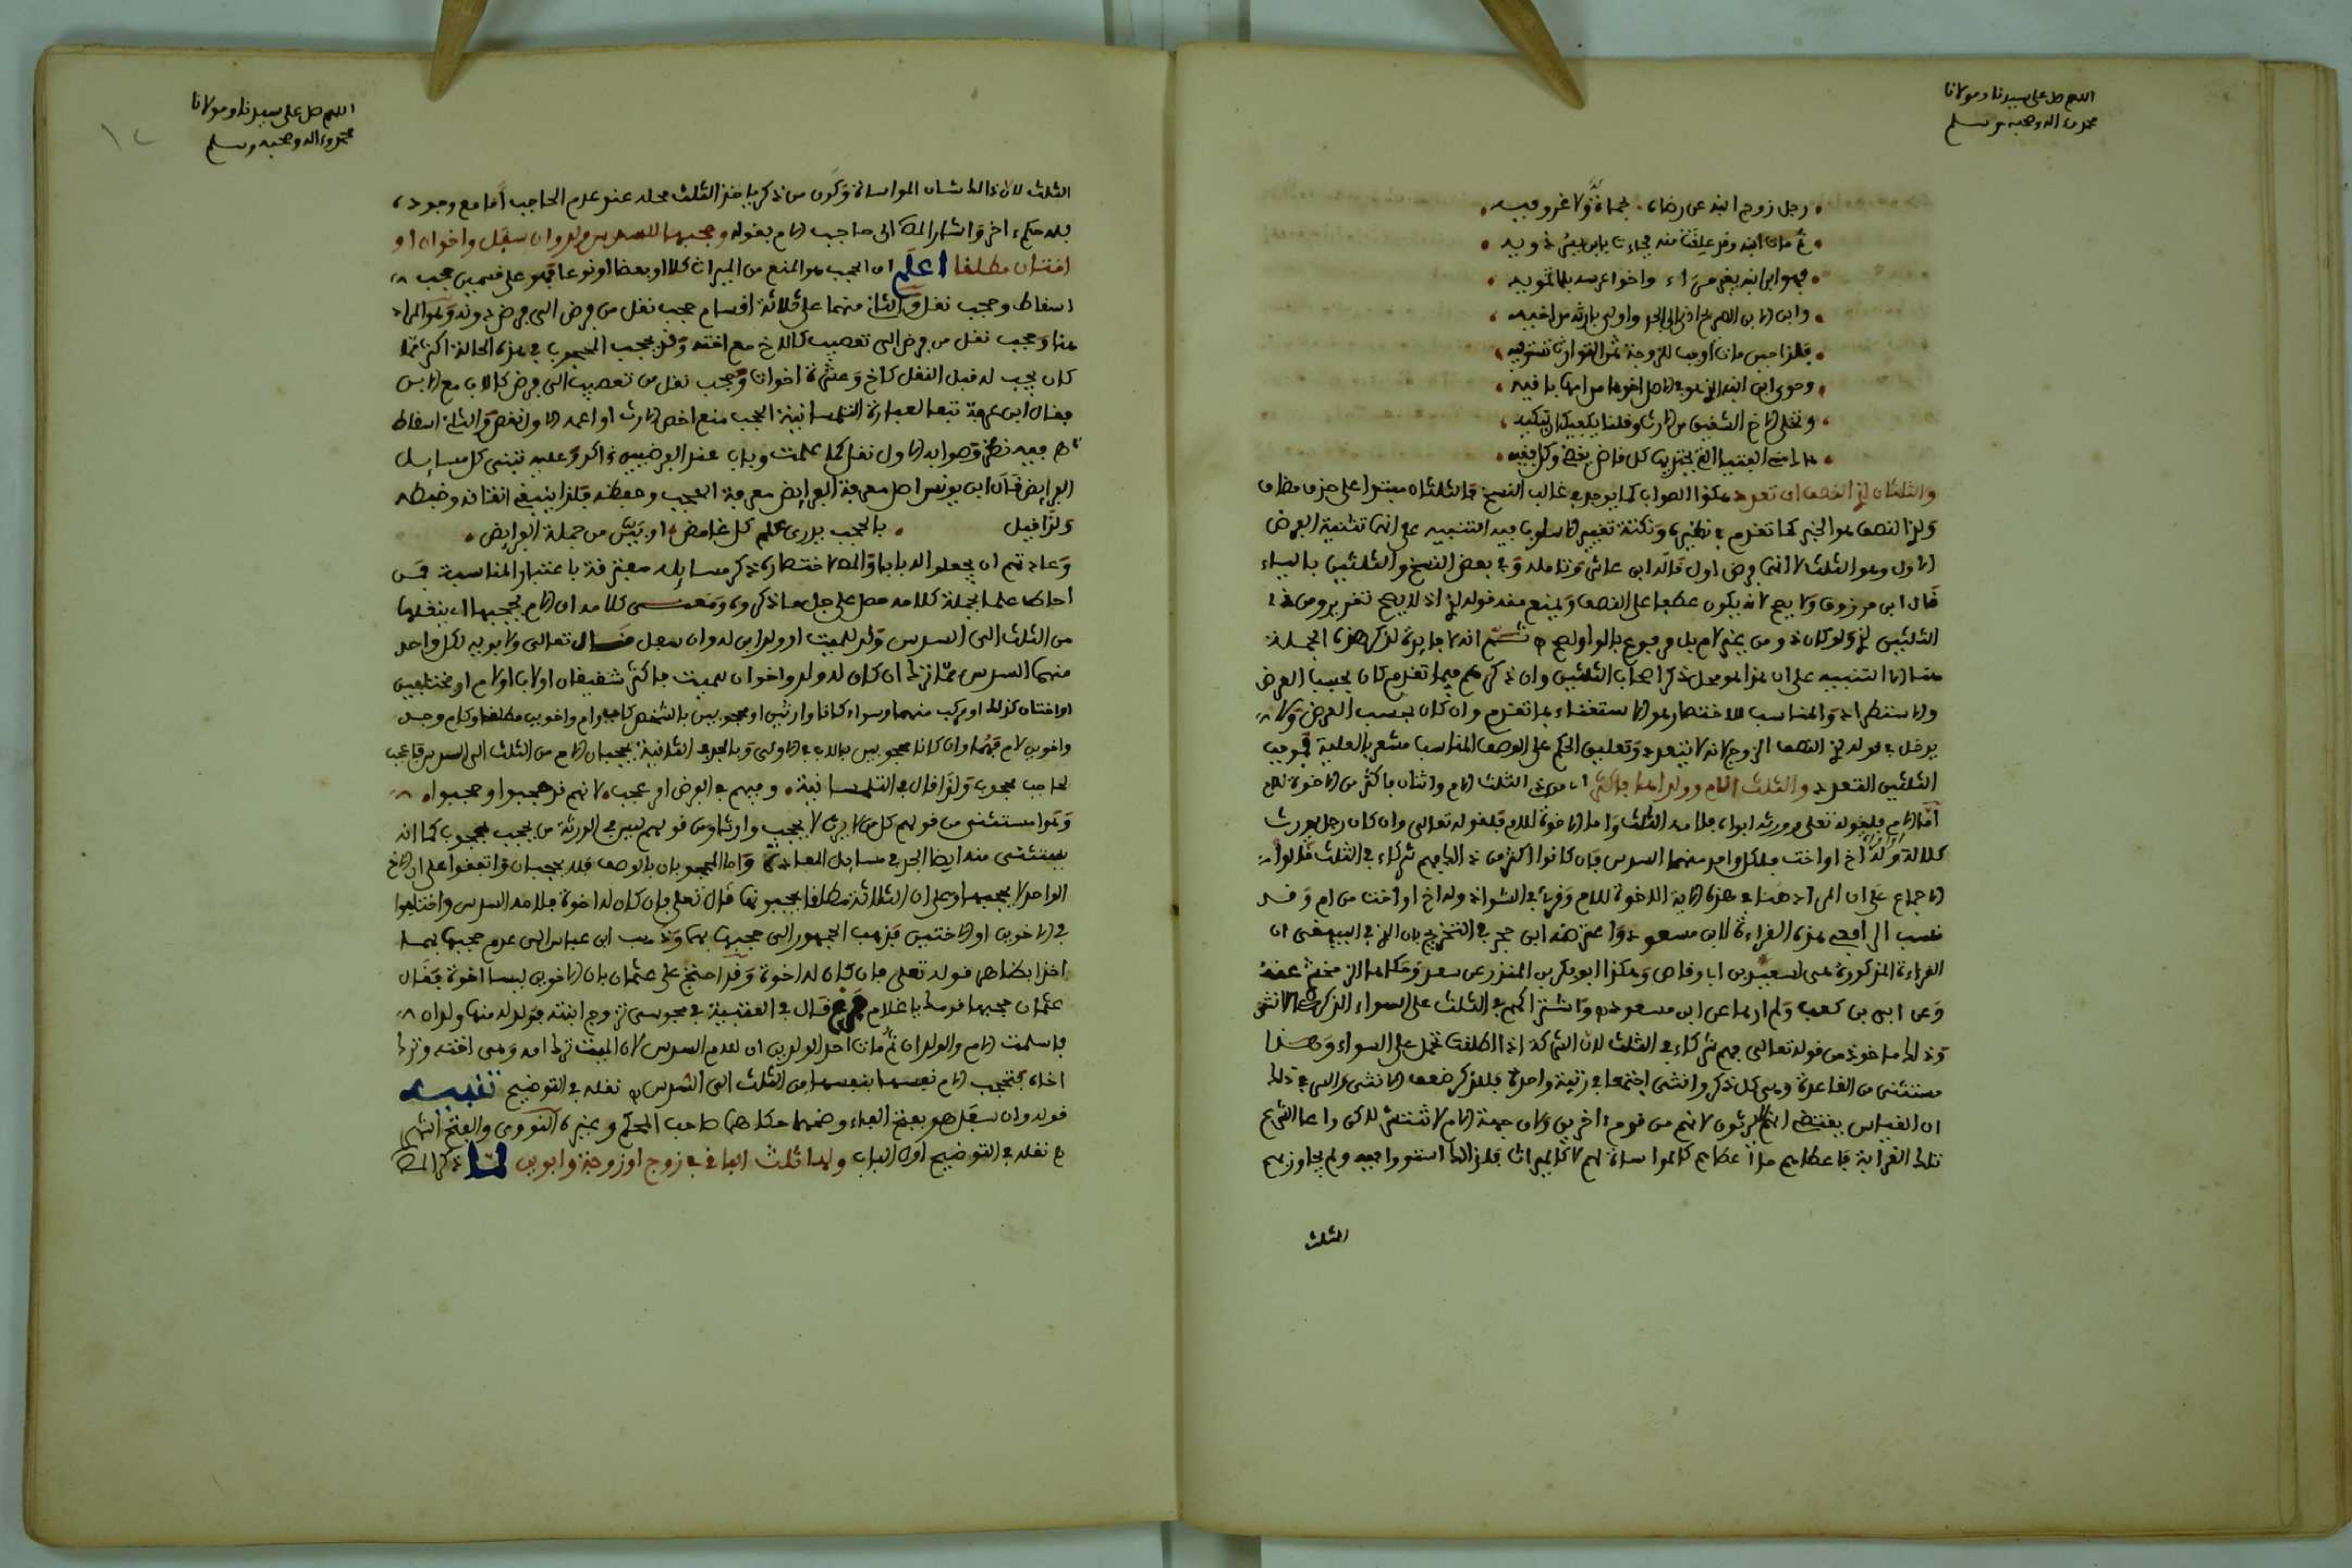 اللهم صل على سيدنا ومولانا
محمد وءاله وصحبه وسلم
رجل زوج ابنه عن رضاه بحماة ولا غرو فيه
ثم مات ابنه وقد علقت منه فجاءت بابن يسر ذويه
فهو ابن ابنه بغير مراء واخو عرسه بلا تمويه
وابن الابن الصريح ادنى الى الجد واولى بارثه من اخيه
فلذا حين مات اوجب للزوجة ثمن التراث تستوفيه
وحوى ابن ابنه الذي هو في الاصل اخوها من امها باقيه
وتخلى الاخ الشقيق من الارث وقلنا يكفيك ان تبكيه
هاك مني الفتيا التي يحتذيها كل قاض يقضي وكل فقيه
والثلثان لذي النصف ان تعدد هكذا الصواب كما يوجد في غالب النسخ فالثلثان مبتدا على حذف مضاف
ولذي النصف هو الخبر كما تقدم في نظيره ونكتة تغيير الاسلوب فيه التنبيه على انها تثنية الفرض
الاول وهو الثلث لا انها فرض اول قاله ابن عاشر وتامله وفي بعض النسخ والثلثين بالياء
قال ابن مرزوق ولا يصح لانه يكون عطفا على النصف ويمنع منه قوله لذي اذ لا يصح تقديره من ذي
الثلثين لذي ولو كان ذو من بغير لام بل مرفوع بالواو لصح ثم انه لا فايدة لذكر هذه الجملة
هنا الا التنبيه على ان هذا هو محل ذكر اصحاب الثلثين وان ذكرهم فيما تقدم كان بحسب العرض
والاستطراد والمناسب للاختصار هو الاستغناء بما تقدم وان كان بحسب العرض ولا
يدخل في قوله لذي النصف الزوج لانه لا يتعدد وتعليق الحكم على الوصف المناسب مشعر بالعلية فموجب
الثلثين التعدد والثلث لام وولداها فاكثر اي من ذي الثلث الام واثنان فاكثر من الاخوة للام
اما الام فلقوله تعلى وورثه ابواه فلامه الثلث واما الاخوة للام فلقوله تعالى وان كان رجل يورث
كلالة وله اخ او اخت فلكل واحد منهما السدس فان كانوا اكثر من ذلك فهم شركاء في الثلث قالوا
الاجماع على ان المراد هنا في هذه الاية الاخوة للام وقرئ في الشواذ وله اخ او اخت من ام وقد
نسب الرافعي هذه القراءة لابن مسعود واعترضه ابن حجر في التخريج بان الذي في البيهقي ان
القراءة المذكورة هي لسعد بن ابي وقاص وهكذا ابو بكر بن المنذر عن سعد وحكاها الزمخشري عنه
وعن ابي بن كعب ولم ارها عن ابن مسعود واشتراكهم في الثلث على السواء الذكر والانثى
وذلك ماخوذ من قوله تعالى فهم شركاء في الثلث لان الشركة اذا اطلقت تحمل على السواء وهذا
مستثنى من القاعدة وهي كل ذكر وانثى اجتمعا في رتبة واحدة فللذكر ضعف الانثى والسر في ذلك
ان القياس يقتضي انهم لا يرثون لانهم من قوم ءاخرين ولان جهة الام لا تنتشر لكن راعا الشرع
تلك القرابة فاعطاهم ما اعطاهم كالمواساة لهم لا كالميراث فلذلك استووا فيه ولم يجاوز بهم
الثلث
اللهم صل على سيدنا ومولانا
محمد وءاله وصحبه وسلم
١٢
الثلث لان ذلك شان المواساة وكون من ذكر ياخذ الثلث محله عند عدم الحاجب اما مع وجوده
فله حكم ءاخر واشار الى حاجب الام بقوله وحجبها للسدس ولد وان سفل واخوان او
اختان مطلقا اعلم ان الحجب هو المنع من الميراث كلا او بعضا او نوعا فهو على قسمين حجب
اسقاط وحجب نقل والثاني منهما على ثلاثة اقسام حجب نقل من فرض الى فرض دونه وهو المراد
هنا وحجب نقل من فرض الى تعصيب كالاخ مع اخته وقد يحجب المحجوب في هذه الحالة اكثر مما
كان يجب له قبل النقل كاخ وعشرة اخوات وحجب نقل من تعصيب الى فرض كالاب مع الابن
فقال ابن عرفة تبعا لعبارة التلمسانية الحجب منع اخص الارث او اعمه الاول نقص والثاني اسقاط
ففيه نظر وصوابه الاول نقل كما علمت وباب عند الفرضيين اكد وعليه تبنى كل مسايل
الفرايض قال ابن يونس اصل معرفة الفرايض معرفة الحجب وحفظه فلذا ينبغي اتقانه وضبطه
ولذا قيل بالحجب يدرى علم كل غامض او بيّن من جملة الفرايض
وعادتهم ان يجعلوا له بابا والاختصار ذكر مسايله مفترقة باعتبار المناسبة فمن
احاط علما بجملة كلامه حصل على جل ما ذكروه ومعنى كلامه ان الام يحجبها اي ينقلها
من الثلث الى السدس ولد للميت او ولد ابن له وان سفل قال تعالى ولابويه لكل واحد
منهما السدس مما ترك ان كان له ولد واخوان للميت فاكثر شقيقان او لاب او لام او مختلفين
او اختان كذلك او مركب منهما وسواء كانا وارثين او محجوبين بالشخص كاب وام واخوين مطلقا وكام وجد
واخوين لام فهما وان كانا محجوبين بالاب في الاولى وبالجد في الثانية يحجبان الام من الثلث الى السدس فاعجب
لحاجب محجوب ولذا قال في التلمسانية وفيهم في الفرض امر عجب لانهم قد حجبوا وحجبوا
وهو مستثنى من قولهم كل من لا يرث لا يحجب وارثا ومن قولهم ليس في الورثة من يحجب محجوب كما انه
يستثنى منه ايضا الجد في مسايل المعادة واما المحجوبان بالوصف فلا يحجبان واتفقوا على ان الاخ
الواحد لا يحجبها وعلى ان الثلاثة مطلقا يحجبونها قال تعلى فان كان له اخوة فلامه السدس واختلفوا
في الاخوين او الاختين فذهب الجمهور الى حجبها بهما وذهب ابن عباس الى عدم حجبها بهما
اخذا بظاهر قوله تعلى فان كان له اخوة وقد احتج على عثمان بان الاخوين ليسا اخوة فقال
عثمان حجبها قومك يا غلام فرع قال في العتبية في مجوسي تزوج ابنته فولد له منها ولدان
فاسلمت الام والولدان ثم مات احد الولدين ان للام السدس لان الميت ترك امه وهي اخته وترك
اخاه فتحجب الام نفسها بنفسها من الثلث الى السدس نقله في التوضيح تنبيه
قوله وان سفل هو بفتح الفاء وضمها حكاهما صاحب المحكم وغيره النووي والفتح اشهر
نقله في التوضيح اول الباب ولها ثلث الباقي في زوج او زوجة وابوين لما ذكر